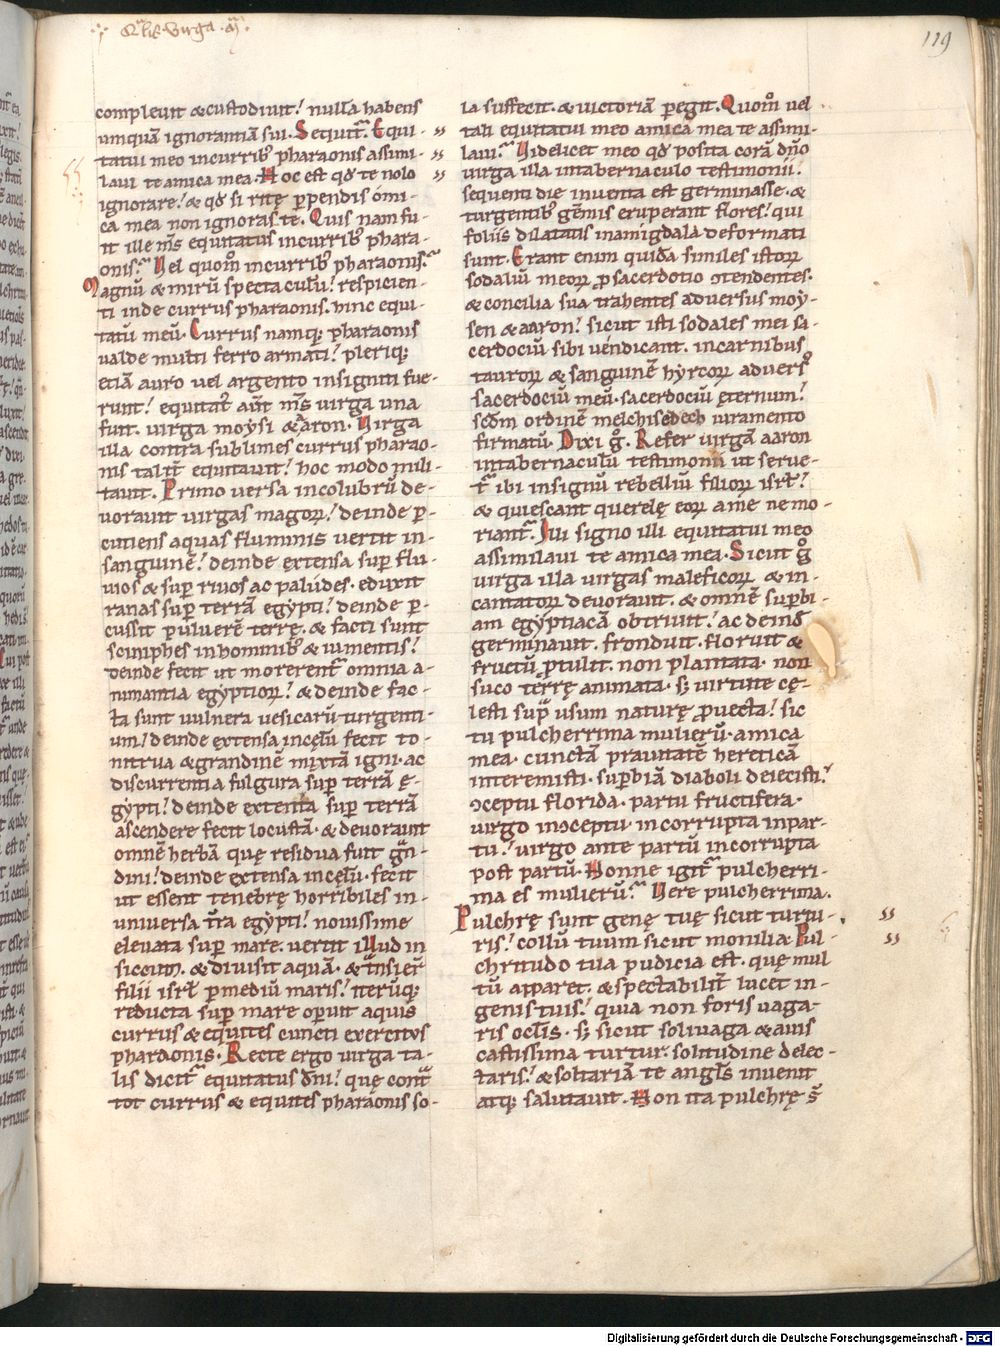 119
compleuit & custodiuit! nulla habens
umquā ignorantiā sui. Sequit᷑. Equi-
tatui meo incurrib; pharaonis assimi-
laui te amica mea. Hoc est qđ te nolo
ignorare! & qđ si ritę ꝑpendis ó ami-
ca mea non ignoras te. Quis nam fu-
it ille m̅s equitatus incurrib; phara-
onis? Vel quom̊ incurrib; pharaonis?
Magnū & mirū spectaculū! respicien-
ti inde currus pharaonis. hinc equi-
tatū meū. Currus namq; pharaonis
valde multi ferro armati! pleriq;
etiā auro vel argento insigniti fue-
runt! equitat᷒ aūt m̅s virga una
fuit. virga moysi & aaron. Virga
illa contra sublimes currus pharao-
nis talit̄ equitauit! hoc modo mili-
tauit. Primo versa incolubrū de-
uorauit uirgas magoꝝ! deinde ꝑ-
cutiens aquas fluminis vertit in-
sanguinē! deinde extensa sup̄ flu-
uios & sup̄ riuos ac paludes. eduxit
ranas sup̄ terrā egypti! deinde ꝑ-
cussit puluerē terrę. & facti sunt
sciniphes in hominib; & iumentis!
deinde fecit ut morerent᷑ omnia a-
nimantia egyptioꝝ! & deinde fac-
ta sunt uulnera uesicarū turgenti-
um! deinde extensa incęlū fecit to-
nitrua & grandinē mixtā igni. ac
discurrentia fulgura sup̄ terrā ę-
gypti! deinde extenta sup̄ terrā
ascendere fecit locustā. & deuorauit
omnē herbā quę residua fuit gͣn-
dini! deinde extensa incęlū. fecit
ut essent tenebrę horribiles in-
universa t̄ra egypti! nouissime
eleuata sup̄ mare. vertit illud in
siccum. & diuisit aquā. & t̄nsier̄
filii isrł ꝑmediū maris! iterūq;
reducta sup̄ mare operuit aquis
currus & equites cuncti exercitus
pharaonis. Recte ergo uirga ta-
lis dicit᷑ equitatus dn̄i! quę cont̄
tot currus & equites pharaonis so-
la suffecit. & uictoriā ꝑegit. Quom̊ uel
tali equitatui meo amica mea te assimi-
laui? Videlicet meo qđ posita corā dn̄o
uirga illa intabernaculo testimonii!
sequenti die inuenta est germinasse. &
turgentib; gēmis eruperant flores! qui
foliis dilatatis inamigdala deformati
sunt. Erant enim quidā similes istoꝝ
sodaliū meoꝝ ꝓ sacerdotio ↄtendentes.
& concilia sua trahentes aduersus moy-
sen & aaron! sicut isti sodales mei sa-
cerdociū sibi uendicant. incarnibus
tauroꝝ & sanguinē hyrcoꝝ aduers᷒
sacerdociū meū. sacerdociū ęternum!
scd̄m ordinē melchisedech iuramento
firmatū. Dixi g̊. Refer uirgā aaron
intabernaculū testimonii ut serue-
t᷑ ibi insignū rebelliū filioꝝ isrł!
& quiescant querelę eoꝝ a me ne mo-
riant᷑. Illi signo illi equitatui meo
assimilaui te amica mea. Sicut g̊
uirga illa uirgas maleficoꝝ & in-
cantatoꝝ deuorauit. & omnē supbi-
am egyptiacā obtriuit! ac deinđ
germinauit. fronduit. floruit &
fructū ꝓtulit. non plantata. non
suco terrę animata. sꝫ uirtute cę-
lesti sup̄ usum naturę ꝓuecta! sic
tu pulcherrima mulierū. amica
mea. cunctā prauitatē hereticā
interemisti. supbiā diaboli deiecisti!
ↄceptu florida. partu fructifera.
uirgo inↄceptu. incorrupta inpar-
tu! uirgo ante partū incorrupta
post partū. Nonne igit᷑ pulcherri-
ma es mulierū? Vere pulcherrima.
Pulchrę sunt genę tuę sicut turtu-
ris! collū tuum sicut monilia. Pul-
chritudo tua pudicia est. quę mul
tū apparet. & spectabilit̄ lucet in-
genis tuis! quia non foris uaga-
ris ocl̄is. sꝫ sicut soliuaga & auis
castissima turtur. solitudine delec-
taris! & solitariā te angl̄s inuenit
atq; salutauit. Non ita pulchrę s̄
Digitalisierung gefördert durch die Deutsche Forschungsgemeinschaft - DFG